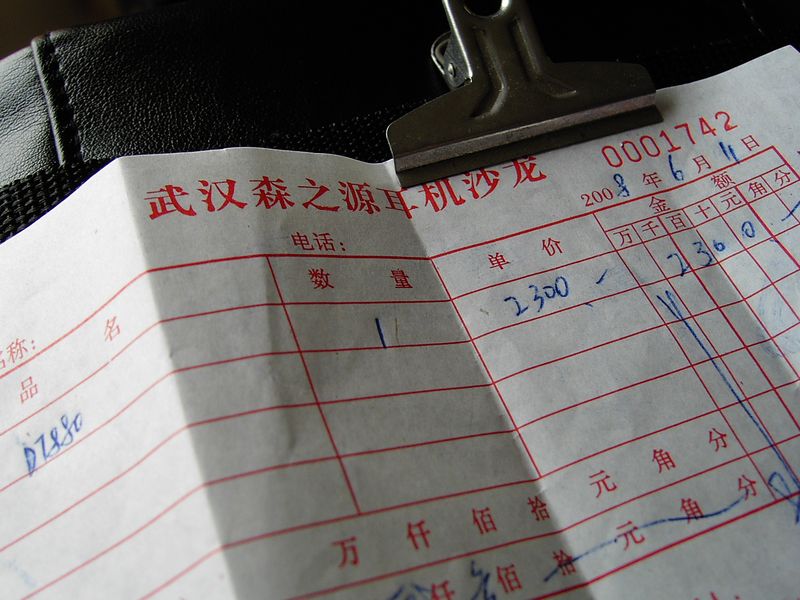 0001742
武汉森之源耳机沙龙
2008年6月11日
电话:
名称:
品名 数量 单价 金额
万千百十元角分
DT880 1 2300 2300
万仟佰拾元角分
仟佰拾元角分